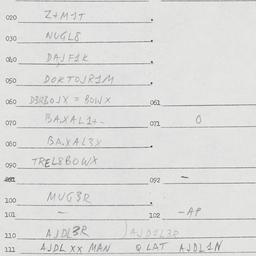 020 Z+M1T
030 NUGL8
040 DAJF1K
050 DOKTOJR1M
060 D3R8OJX = BOWX 061
070 BAXAL1+- 071 0
080 BAXAL3X
090 TREL8BOWX
092 -
100 MUG3R
101 - 102 -AP
110 AJDL3R AJD1L3R
111 AJDL XX MAN Q LAT AJDL1N